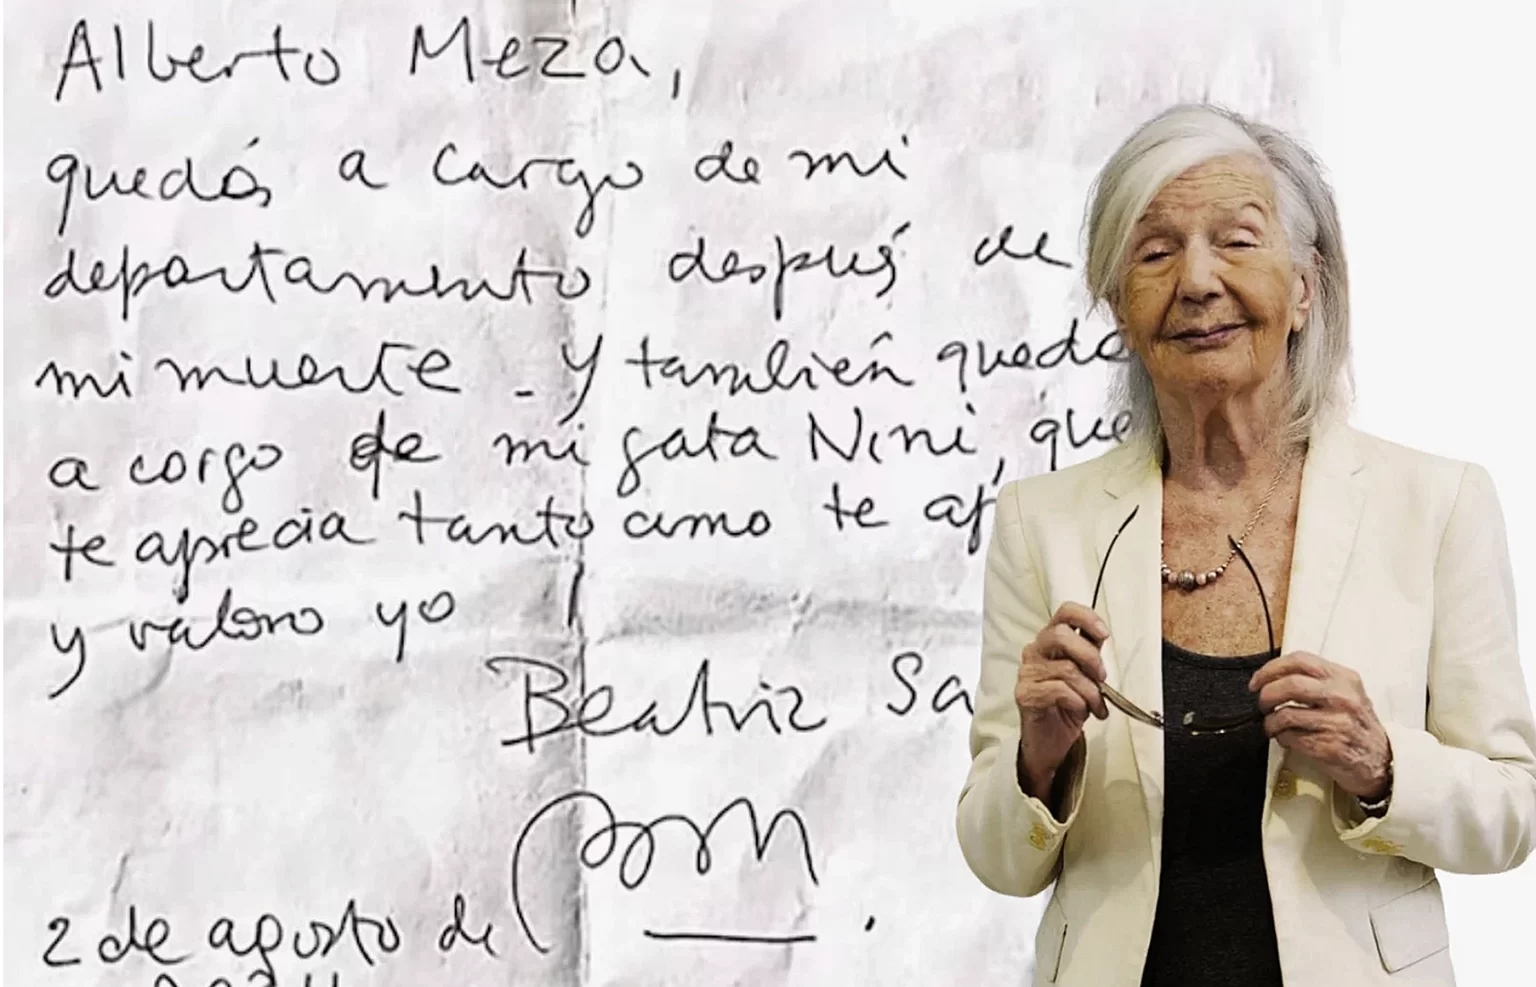 Alberto Meza,
quedás a cargo de mi
departamento después de
mi muerte - y también quedás
a cargo de mi gata Nini, que
te aprecia tanto como te ap
y valoro yo
Beatriz Sa
2 de agosto de